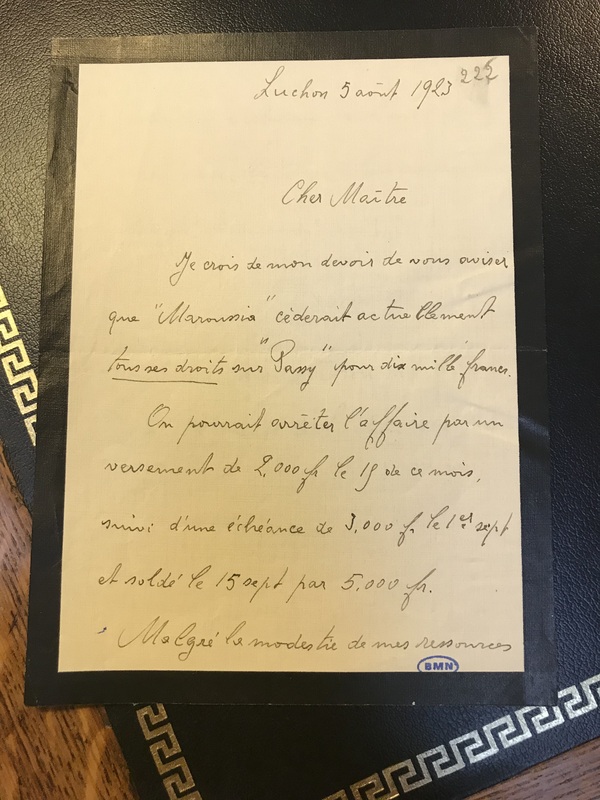 222
Luchon 5 août 1923
Cher Maître
Je crois de mon devoir de vous aviser
que "Maroussia" cèderait actuellement
tous ses droits sur "Passy" pour dix mille francs.
On pourrait arrêter l'affaire par un
versement de 2,000 fr le 15 de ce mois,
suivi d'une échéance de 3,000 fr le 1er sept
et soldé le 15 sept par 5,000 fr.
Malgré la modestie de mes ressources
BMN